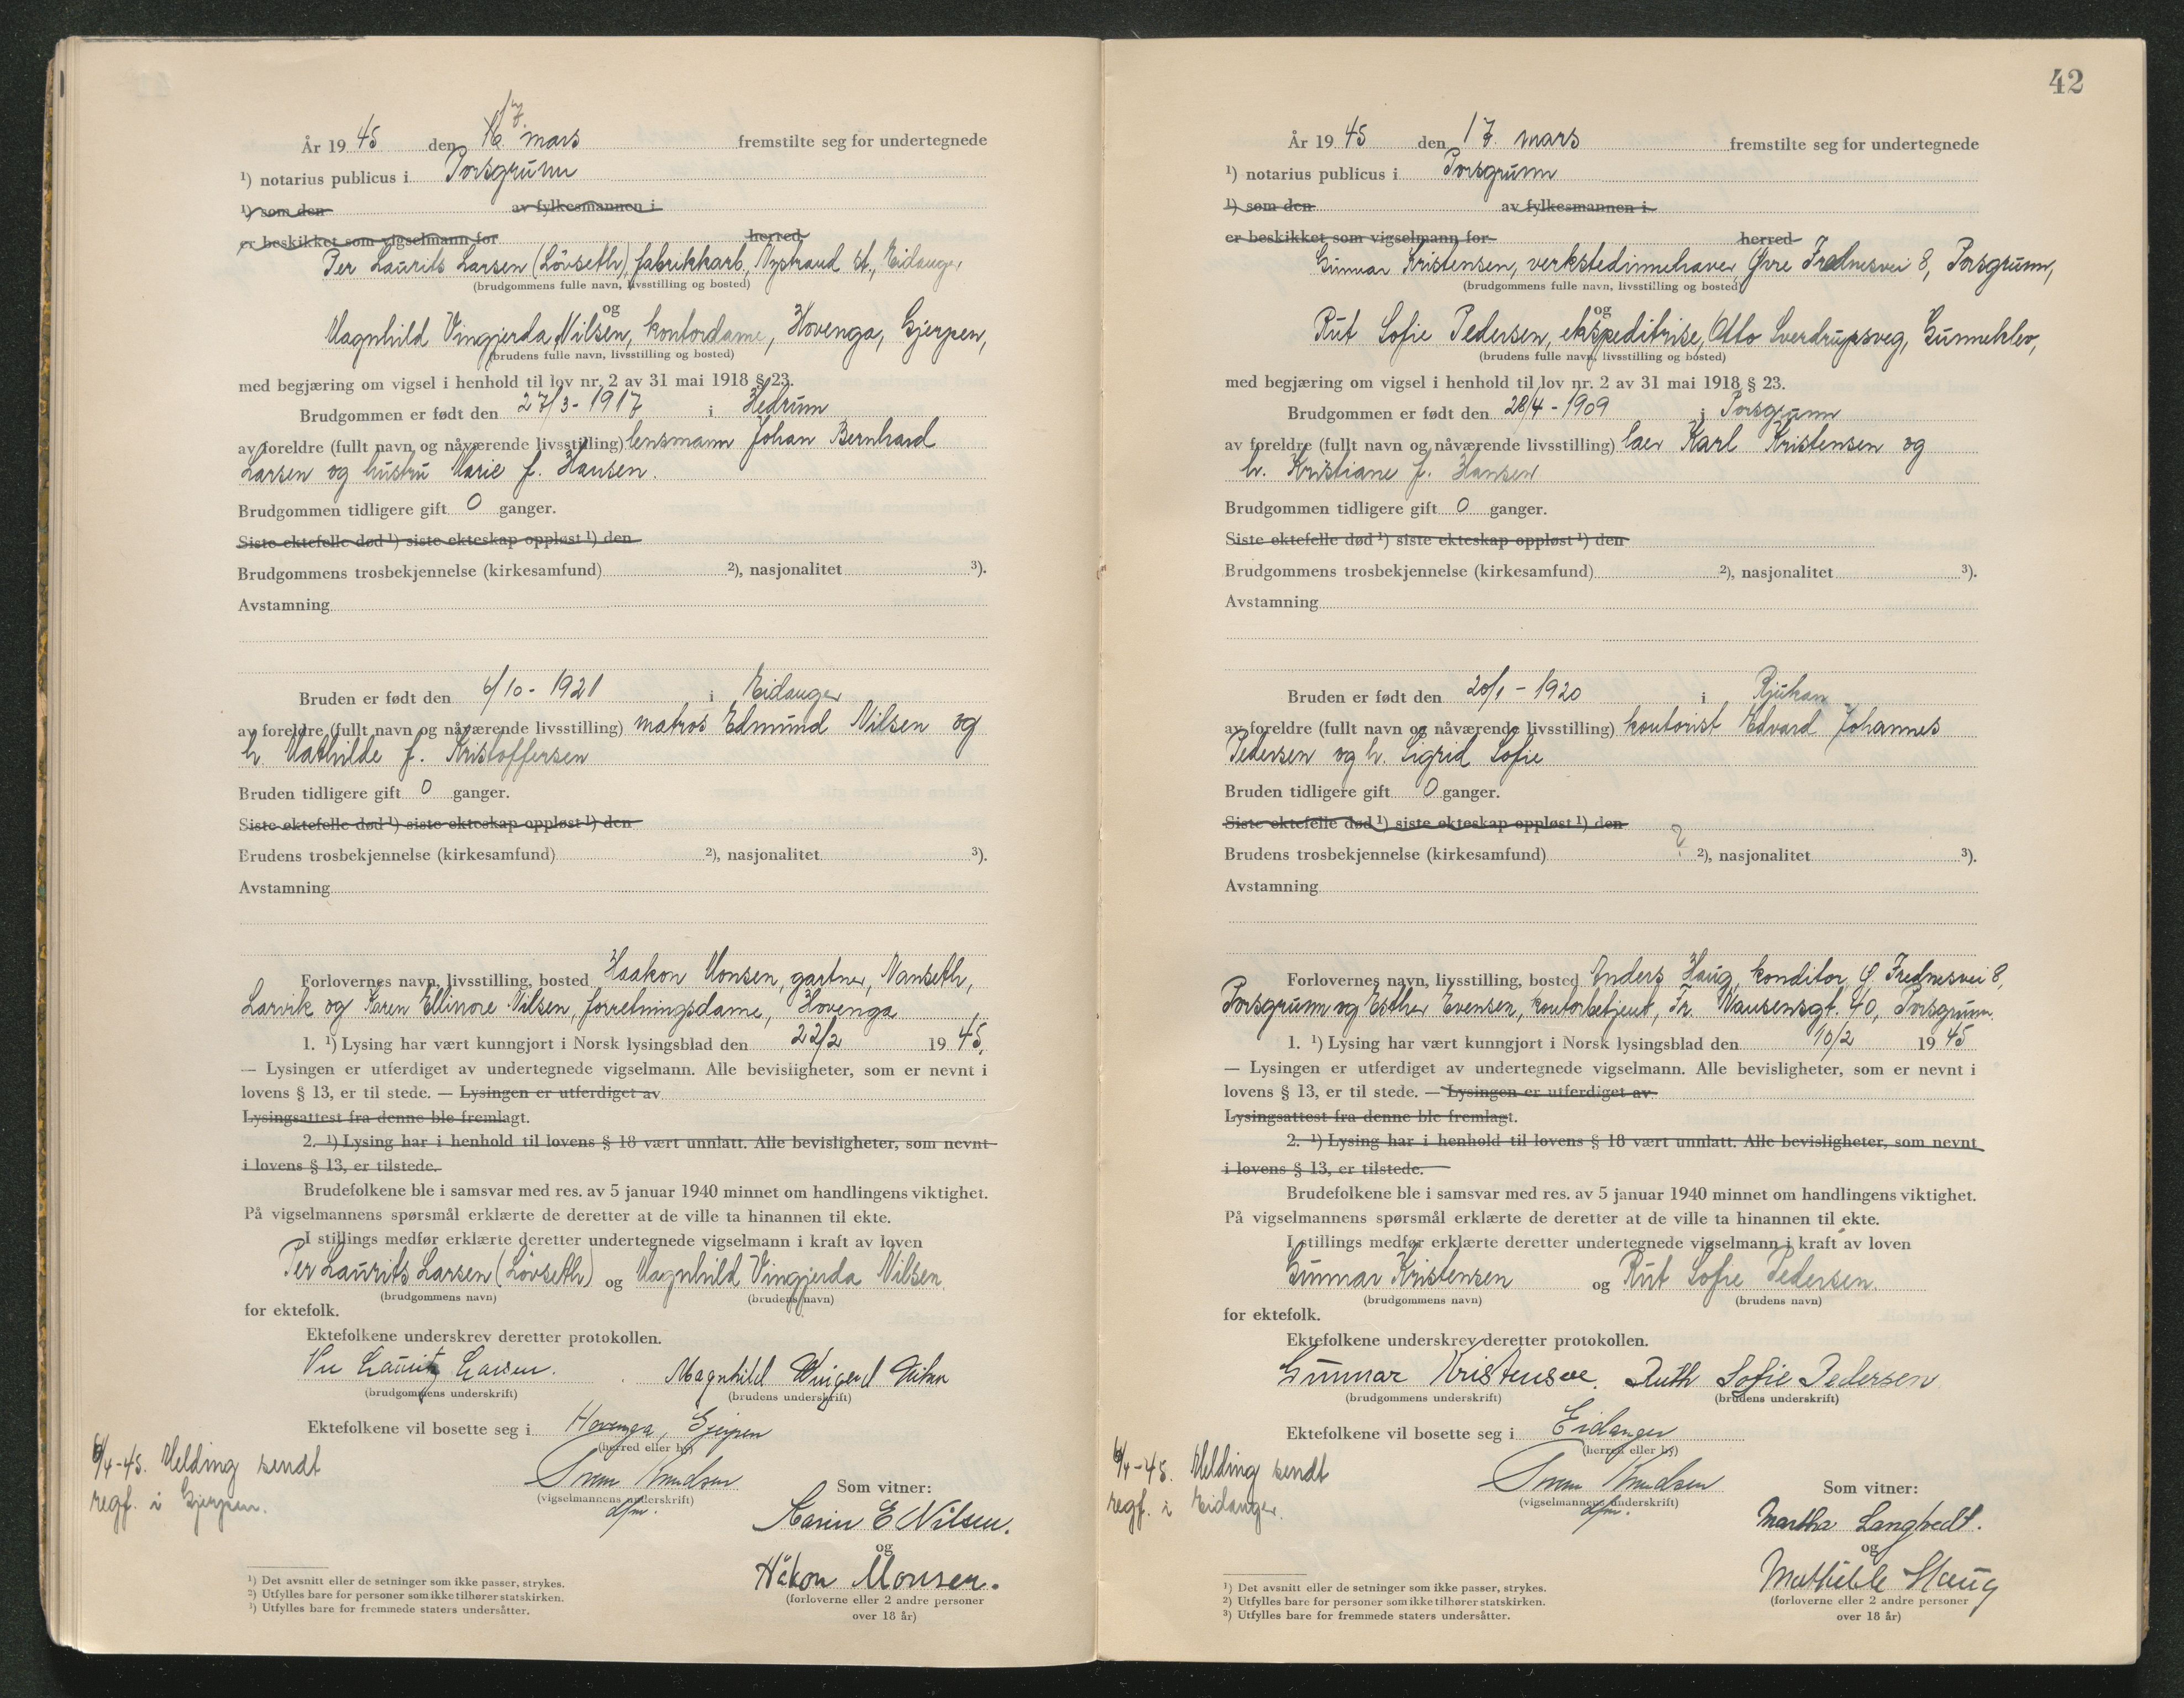 17.
År 1945 den 16. mars fremstilte seg for undertegnede
¹) notarius publicus i Porsgrunn
¹) som den av fylkesmannen i
er beskikket som vigselmann for herred
Per Laurits Larsen (Lövseth), fabrikkarb., Nystrand st., Eidanger
(brudgommens fulle navn, livsstilling og bosted)
og
Magnhild Vingjerda Nilsen, kontordame, Hovenga, Gjerpen,
(brudens fulle navn, livsstilling og bosted)
med begjæring om vigsel i henhold til lov nr. 2 av 31 mai 1918 § 23.
Brudgommen er født den 27/3 - 1917 i Hedrum
av foreldre (fullt navn og nåværende livsstilling) lensmann Johan Bernhard
Larsen og hustru Marie f. Hansen.
Brudgommen tidligere gift 0 ganger.
Siste ektefelle død ¹) siste ekteskap oppløst ¹) den
Brudgommens trosbekjennelse (kirkesamfund) ²), nasjonalitet ³).
Avstamning
Bruden er født den 6/10 - 1921 i Eidanger
av foreldre (fullt navn og nåværende livsstilling) matros Edmund Nilsen og
h. Mathilde f. Kristoffersen
Bruden tidligere gift 0 ganger.
Siste ektefelle død ¹) siste ekteskap oppløst ¹) den
Brudens trosbekjennelse (kirkesamfund) ²), nasjonalitet ³).
Avstamning
Forlovernes navn, livsstilling, bosted Haakon Monsen, gartner, Nanseth,
Larvik og Karen Ellinore Nilsen, forretningsdame, Hovenga
1. ¹) Lysing har vært kunngjort i Norsk lysingsblad den 22/2 1945,
— Lysingen er utferdiget av undertegnede vigselmann. Alle bevisligheter, som er nevnt i
lovens § 13, er til stede. — Lysingen er utferdiget av
Lysingsattest fra denne ble fremlagt.
2. ¹) Lysing har i henhold til lovens § 18 vært unnlatt. Alle bevisligheter, som nevnt
i lovens § 13, er tilstede.
Brudefolkene ble i samsvar med res. av 5 januar 1940 minnet om handlingens viktighet.
På vigselmannens spørsmål erklærte de deretter at de ville ta hinannen til ekte.
I stillings medfør erklærte deretter undertegnede vigselmann i kraft av loven
Per Laurits Larsen (Lövseth) og Magnhild Vingjerda Nilsen
(brudgommens navn) (brudens navn)
for ektefolk.
Ektefolkene underskrev deretter protokollen.
Per Laurits Larsen. Magnhild Vingerd Nilsen
(brudgommens underskrift) (brudens underskrift)
Ektefolkene vil bosette seg i Hovenga, Gjerpen
(herred eller by)
6/4-45. Melding sendt
regf. i Gjerpen.
Svein Knudsen
(vigselmannens underskrift)
dfm.
Som vitner:
Karin E Nilsen.
og
Håkon Monsen.
(forloverne eller 2 andre personer
over 18 år)
¹) Det avsnitt eller de setninger som ikke passer, strykes.
²) Utfylles bare for personer som ikke tilhører statskirken.
³) Utfylles bare for fremmede staters undersåtter.
42
År 1945 den 17. mars fremstilte seg for undertegnede
¹) notarius publicus i Porsgrunn
¹) som den av fylkesmannen i
er beskikket som vigselmann for herred
Gunnar Kristensen, verkstedinnehaver, Øvre Frednesvei 8, Porsgrunn,
(brudgommens fulle navn, livsstilling og bosted)
og
Rut Sofie Pedersen, ekspeditrise, Otto Sverdrupsveg, Gunneklev,
(brudens fulle navn, livsstilling og bosted)
med begjæring om vigsel i henhold til lov nr. 2 av 31 mai 1918 § 23.
Brudgommen er født den 28/4 - 1909 i Porsgrunn
av foreldre (fullt navn og nåværende livsstilling) laer Karl Kristensen og
h. Kristiane f. Hansen
Brudgommen tidligere gift 0 ganger.
Siste ektefelle død ¹) siste ekteskap oppløst ¹) den
Brudgommens trosbekjennelse (kirkesamfund) ²), nasjonalitet ³).
Avstamning
Bruden er født den 20/1 - 1920 i Rjukan
av foreldre (fullt navn og nåværende livsstilling) kontorist Edvard Johannes
Pedersen og h. Sigrid Sofie
Bruden tidligere gift 0 ganger.
Siste ektefelle død ¹) siste ekteskap oppløst ¹) den
Brudens trosbekjennelse (kirkesamfund) ? ²), nasjonalitet ³).
Avstamning
Forlovernes navn, livsstilling, bosted Anders Haug, konditor, Ø. Frednesvei 8,
Porsgrunn og Esther Evensen, kontorbetjent, Fr. Nansensgt. 40, Porsgrunn.
1. ¹) Lysing har vært kunngjort i Norsk lysingsblad den 10/2 1945
— Lysingen er utferdiget av undertegnede vigselmann. Alle bevisligheter, som er nevnt i
lovens § 13, er til stede. — Lysingen er utferdiget av
Lysingsattest fra denne ble fremlagt.
2. ¹) Lysing har i henhold til lovens § 18 vært unnlatt. Alle bevisligheter, som nevnt
i lovens § 13, er tilstede.
Brudefolkene ble i samsvar med res. av 5 januar 1940 minnet om handlingens viktighet.
På vigselmannens spørsmål erklærte de deretter at de ville ta hinannen til ekte.
I stillings medfør erklærte deretter undertegnede vigselmann i kraft av loven
Gunnar Kristensen og Rut Sofie Pedersen.
(brudgommens navn) (brudens navn)
for ektefolk.
Ektefolkene underskrev deretter protokollen.
Gunnar Kristensen. Ruth Sofie Pedersen
(brudgommens underskrift) (brudens underskrift)
Ektefolkene vil bosette seg i Eidanger
(herred eller by)
6/4-45. Melding sendt
regf. i Eidanger.
Svein Knudsen
(vigselmannens underskrift)
dfm.
Som vitner:
Martha Langtvedt.
og
Mathilde Haug
(forloverne eller 2 andre personer
over 18 år)
¹) Det avsnitt eller de setninger som ikke passer, strykes.
²) Utfylles bare for personer som ikke tilhører statskirken.
³) Utfylles bare for fremmede staters undersåtter.